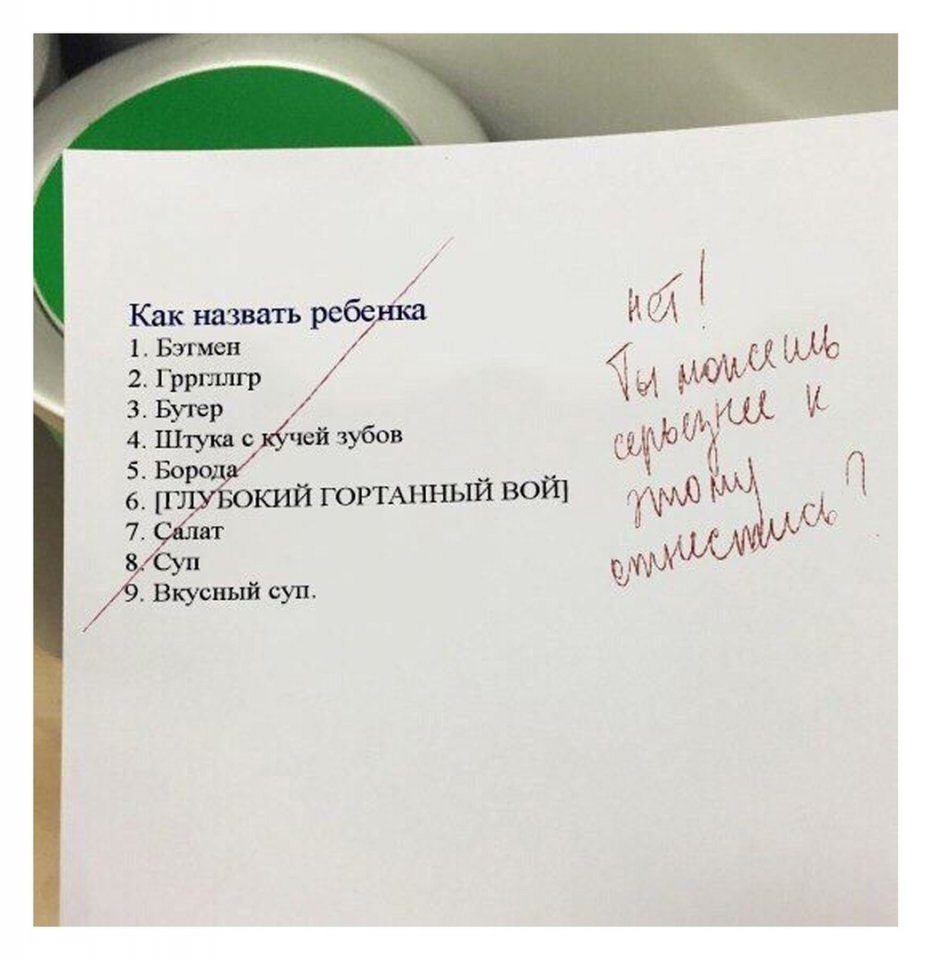 Как назвать ребенка
1. Бэтмен
2. Грргллгр
3. Бутер
4. Штука с кучей зубов
5. Борода
6. [ГЛУБОКИЙ ГОРТАННЫЙ ВОЙ]
7. Салат
8. Суп
9. Вкусный суп.
нет!
Ты можешь
серьезнее к
этому
отнестись?